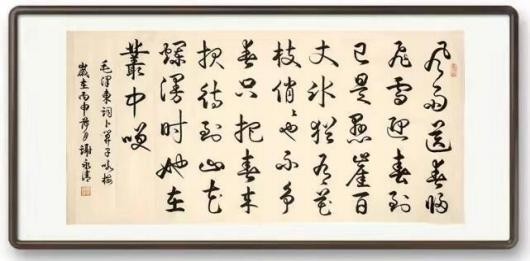 风雨送春归
飛雪迎春到
已是悬崖百
丈冰猶有花
枝俏俏也不争
春只把春来
报待到山花
烂漫时她在
叢中咲
毛澤東詞卜算子咏梅
歲在丙申 月谢永清